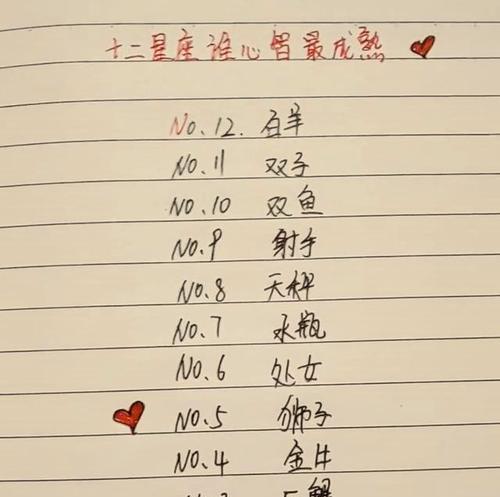 十二星座谁心智最成熟
No.12. 白羊
No.11 双子
No.10 双鱼
No.9 射手
No.8 天秤
No.7 水瓶
No.6 处女
No.5 狮子
No.4 金牛